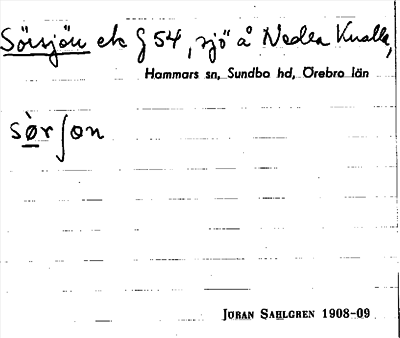 Sörsjön ek § 54, sjö å Nedra Knalla,
Hammars sn, Sundbo hd, Örebro län
sø̀rʃon
JÖRAN SAHLGREN 1908-09